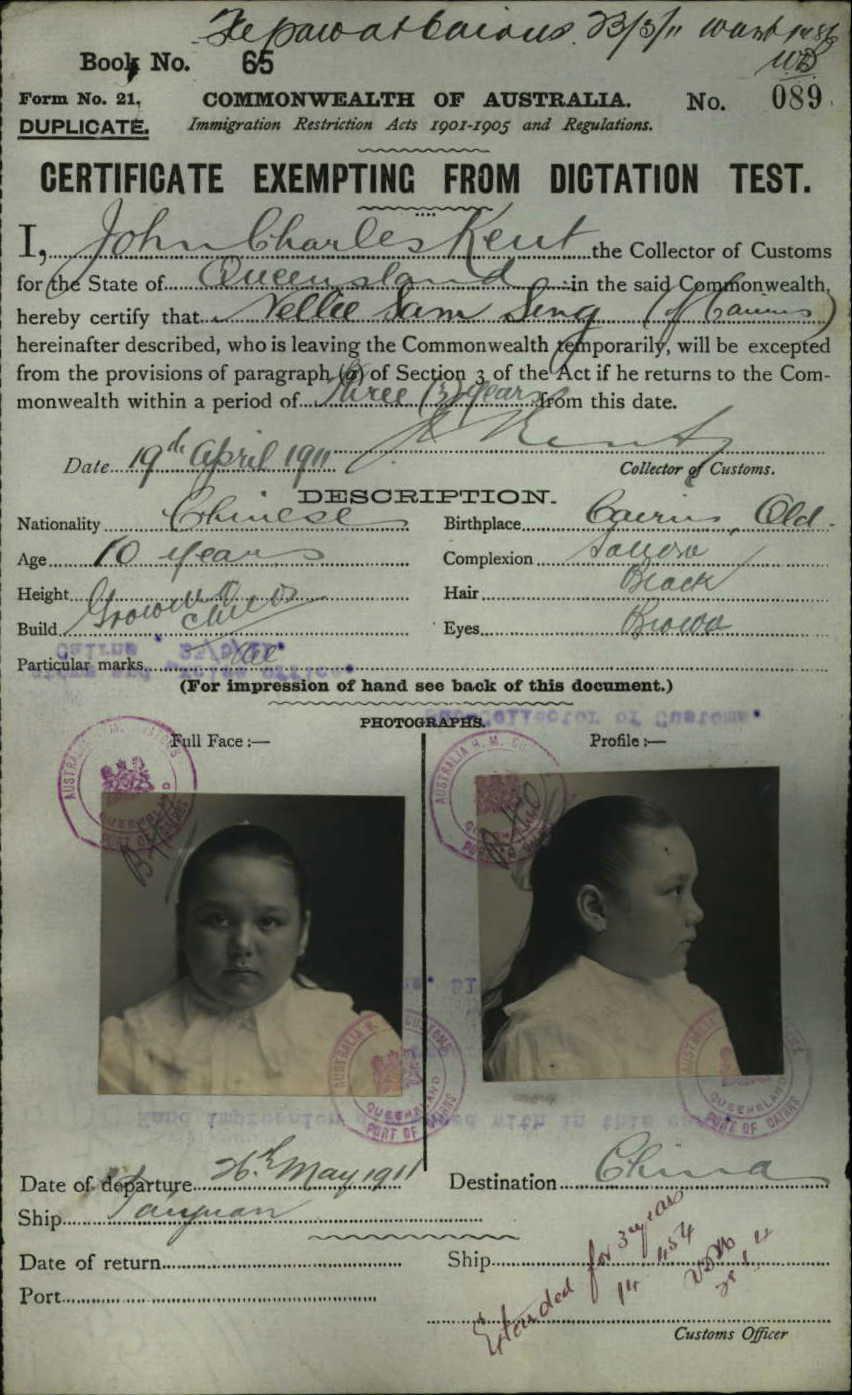 at Cairns 23/3/11
Book No. 65
WB
Form No. 21. COMMONWEALTH OF AUSTRALIA. No. 089
DUPLICATE. Immigration Restriction Acts 1901-1905 and Regulations.
CERTIFICATE EXEMPTING FROM DICTATION TEST.
I, John Charles Kent the Collector of Customs
for the State of Queensland in the said Commonwealth,
hereby certify that Nellie Sam Sing (of Cairns)
hereinafter described, who is leaving the Commonwealth temporarily, will be excepted
from the provisions of paragraph (a) of Section 3 of the Act if he returns to the Com-
monwealth within a period of three (3) years from this date.
J C Kent
Date 19th April 1911 Collector of Customs.
DESCRIPTION.
Nationality Chinese Birthplace Cairns, Qld.
Age 10 years Complexion Sallow
Height Growing Hair Black
Build child Eyes Brown
Particular marks Nil
(For impression of hand see back of this document.)
PHOTOGRAPHS.
Full Face :— Profile :—
AUSTRALIA H. M. CUSTOMS
QUEENSLAND
PORT OF CAIRNS
AUSTRALIA H. M. CUSTOMS
QUEENSLAND
PORT OF CAIRNS
AUSTRALIA H. M. CUSTOMS
QUEENSLAND
PORT OF CAIRNS
AUSTRALIA H. M. CUSTOMS
QUEENSLAND
PORT OF CAIRNS
Date of departure 26th May 1911 Destination China
Ship Taiyuan
Date of return Ship
Port
Extended for 3 years
14/454
Customs Officer